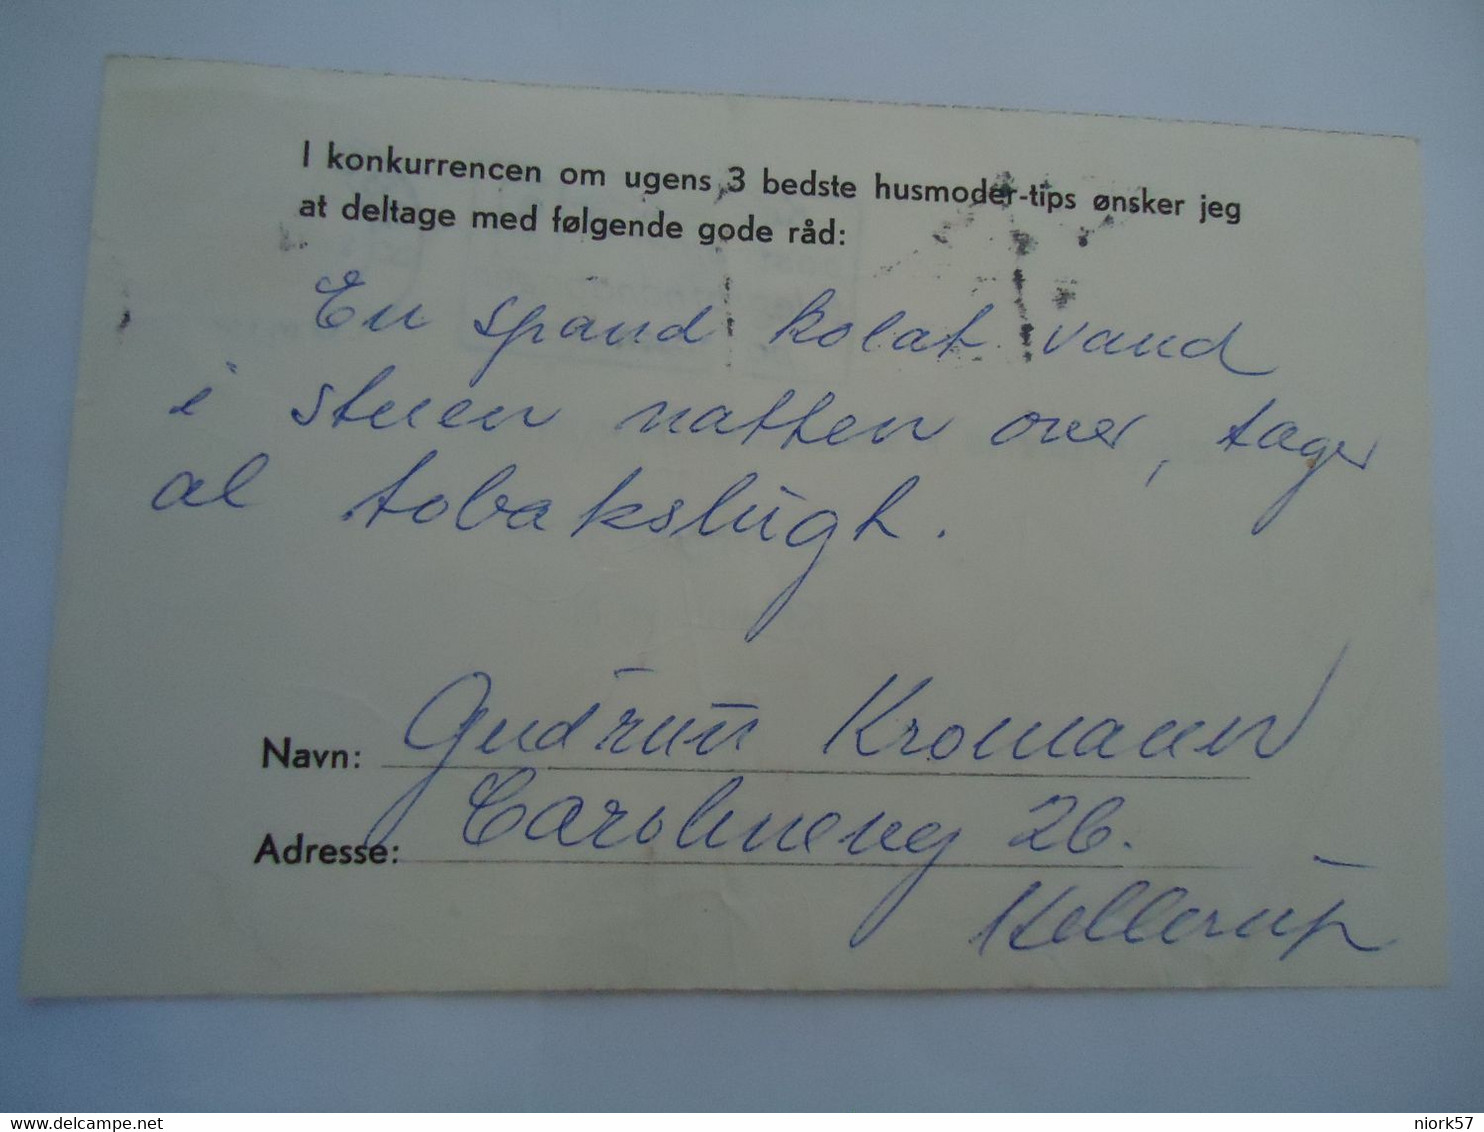 I konkurrencen om ugens 3 bedste husmoder-tips ønsker jeg
at deltage med følgende gode råd:
En spand kolat vand
i stuen natten over, tager
al tobakslugt.
Navn: Gudrun Kromann
Adresse: Carolinevej 26.
Hellerup
niork57